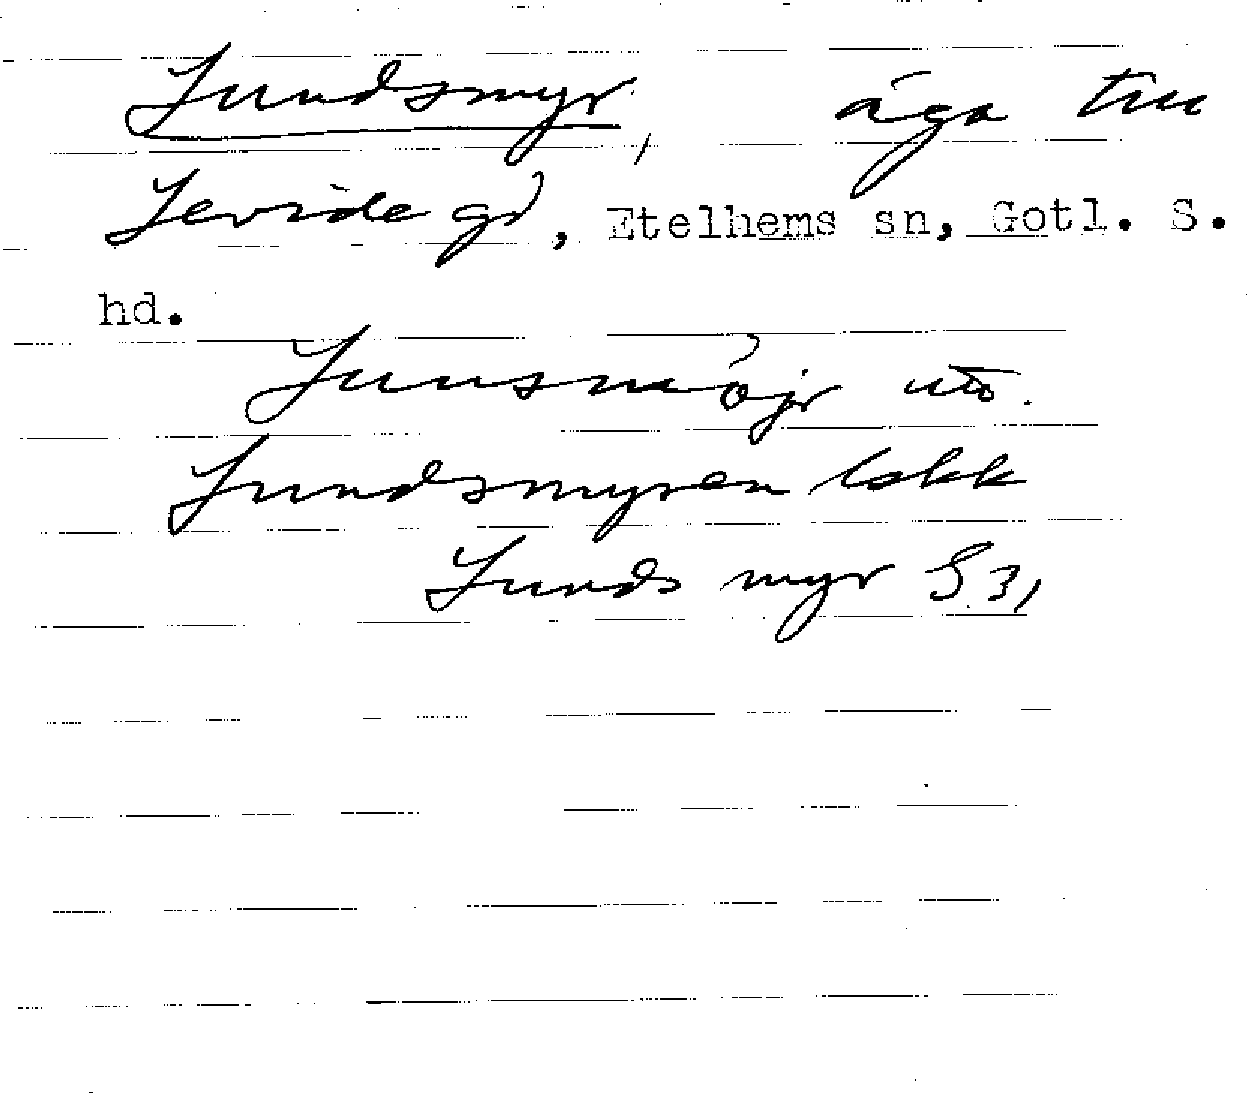 Lundsmyr, äga till
Levide gd, Etelhems sn, Gotl. S.
hd.
Lunsmöjr utt.
Lundsmyren lokk
Lunds myr S. 31